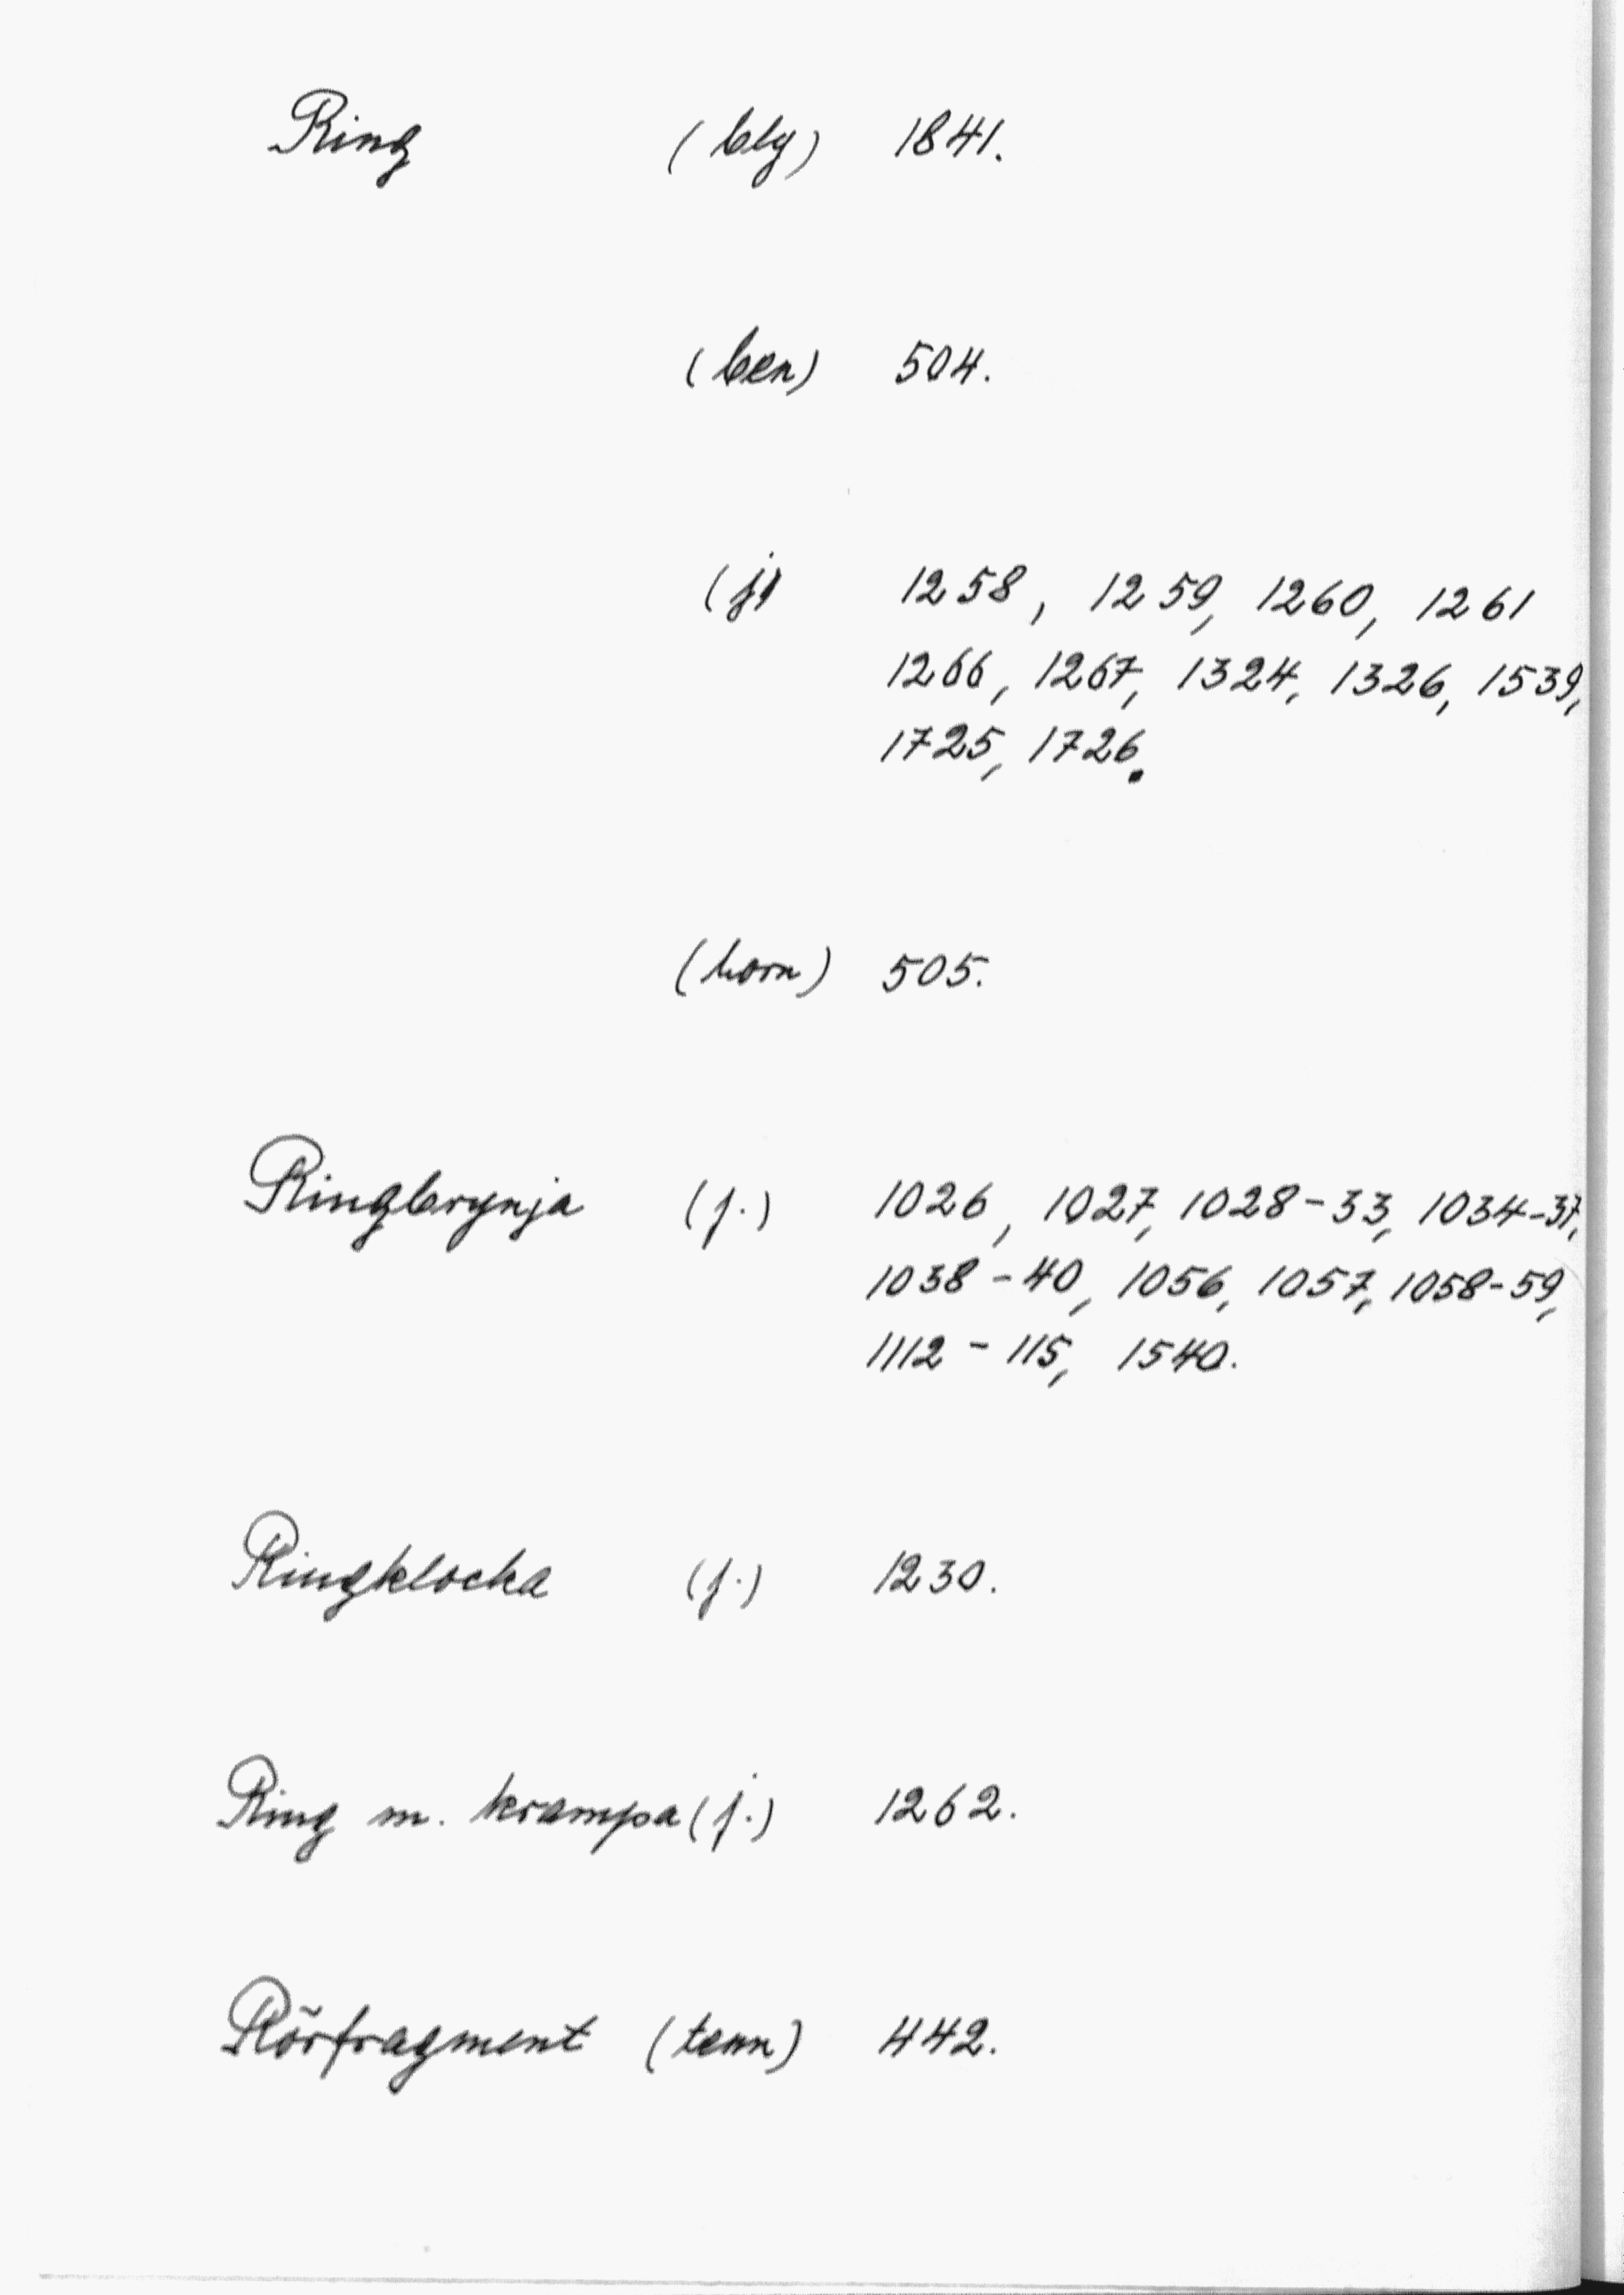 Ring (bly) 1841.
(ben) 504.
(j) 1258, 1259, 1260, 1261
1266, 1267, 1324, 1326, 1539,
1725, 1726.
(horn) 505.
Ringbrynja (j.) 1026, 1027, 1028-33, 1034-37,
1038-40, 1056, 1057, 1058-59,
1112-115, 1540.
Ringklocka (j.) 1230.
Ring m. krampa (j.) 1262.
Rörfragment (tenn) 442.